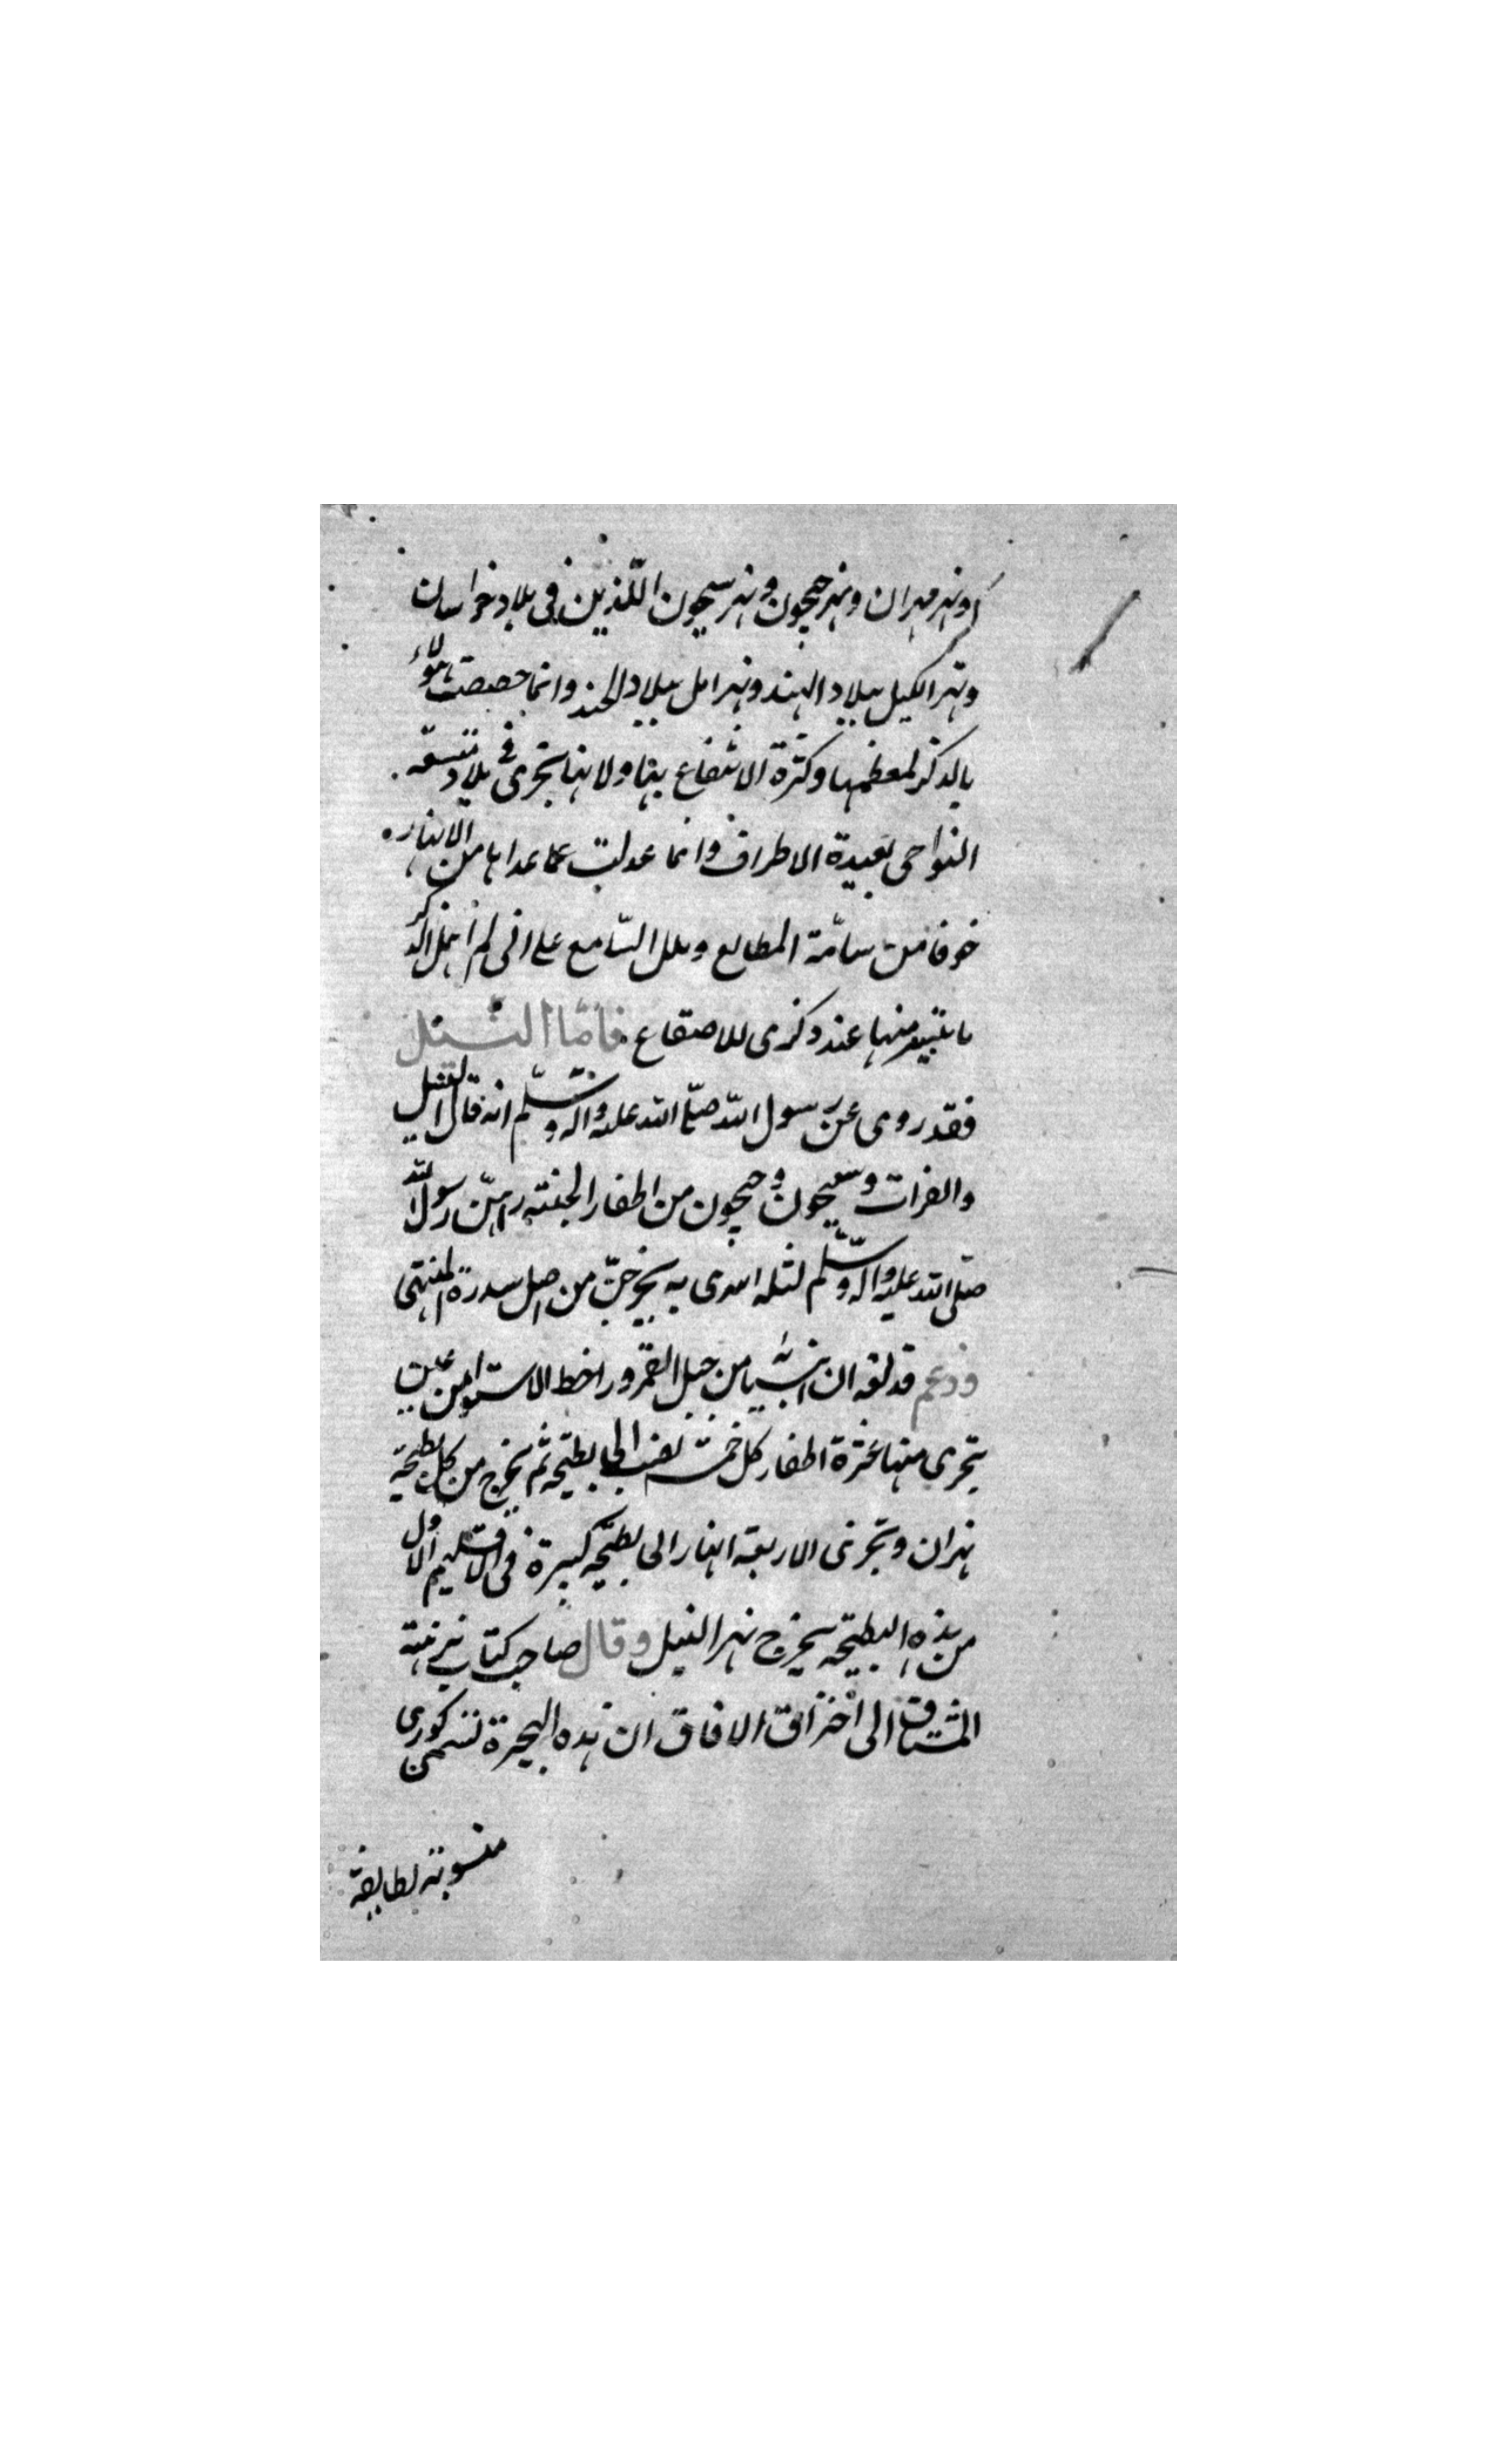 ونهر مهران ونهر جيحون ونهر سيحون اللذين فى بلاد خراسان
ونهر الكيل ببلاد الهند ونهر ببلاد وانما خصصت هؤلاء
بالذكر لعظمها وكثرة الانتفاع بها ولانها تجرى فى بلاد متسعة
النواحى بعيدة الاطراف وانما عدلت عما عداها من الانهار
خوفا من سامة المطالع وملل السامع على انى لم اهمل الذكر
ما تيسر منها عند ذكرى للاصقاع فامّا النيل
فقد روى عن رسول الله صلّى الله عليه واله وسلّم انه قال النيل
والفرات وسيحون وجيحون من انهار الجنة رسول الله
صلّى الله عليه واله وسلّم ليلة اسرى به يخرجن من اصل سدرة المنتهى
وزعم ان من جبل القمر ورا خط الاستوا من عين
تجرى منها عشرة انهار كل خمسة تصب الى بطيحة ثم يخرج من كل بطيحة
نهران وتجرى الاربعة انهار الى بطيحة كبيرة فى الاقليم الاول
من هذه البطيحة يخرج نهر النيل وقال صاحب كتاب نزهة
المشتاق الى اختراق الافاق ان هذه البحيرة تسمى كورى
منسوبة لطايفة